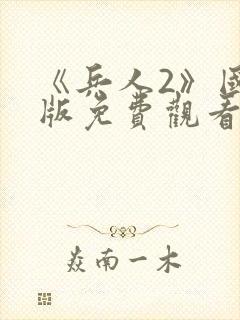 《兵人2》国
版免費觀看
焱南一木